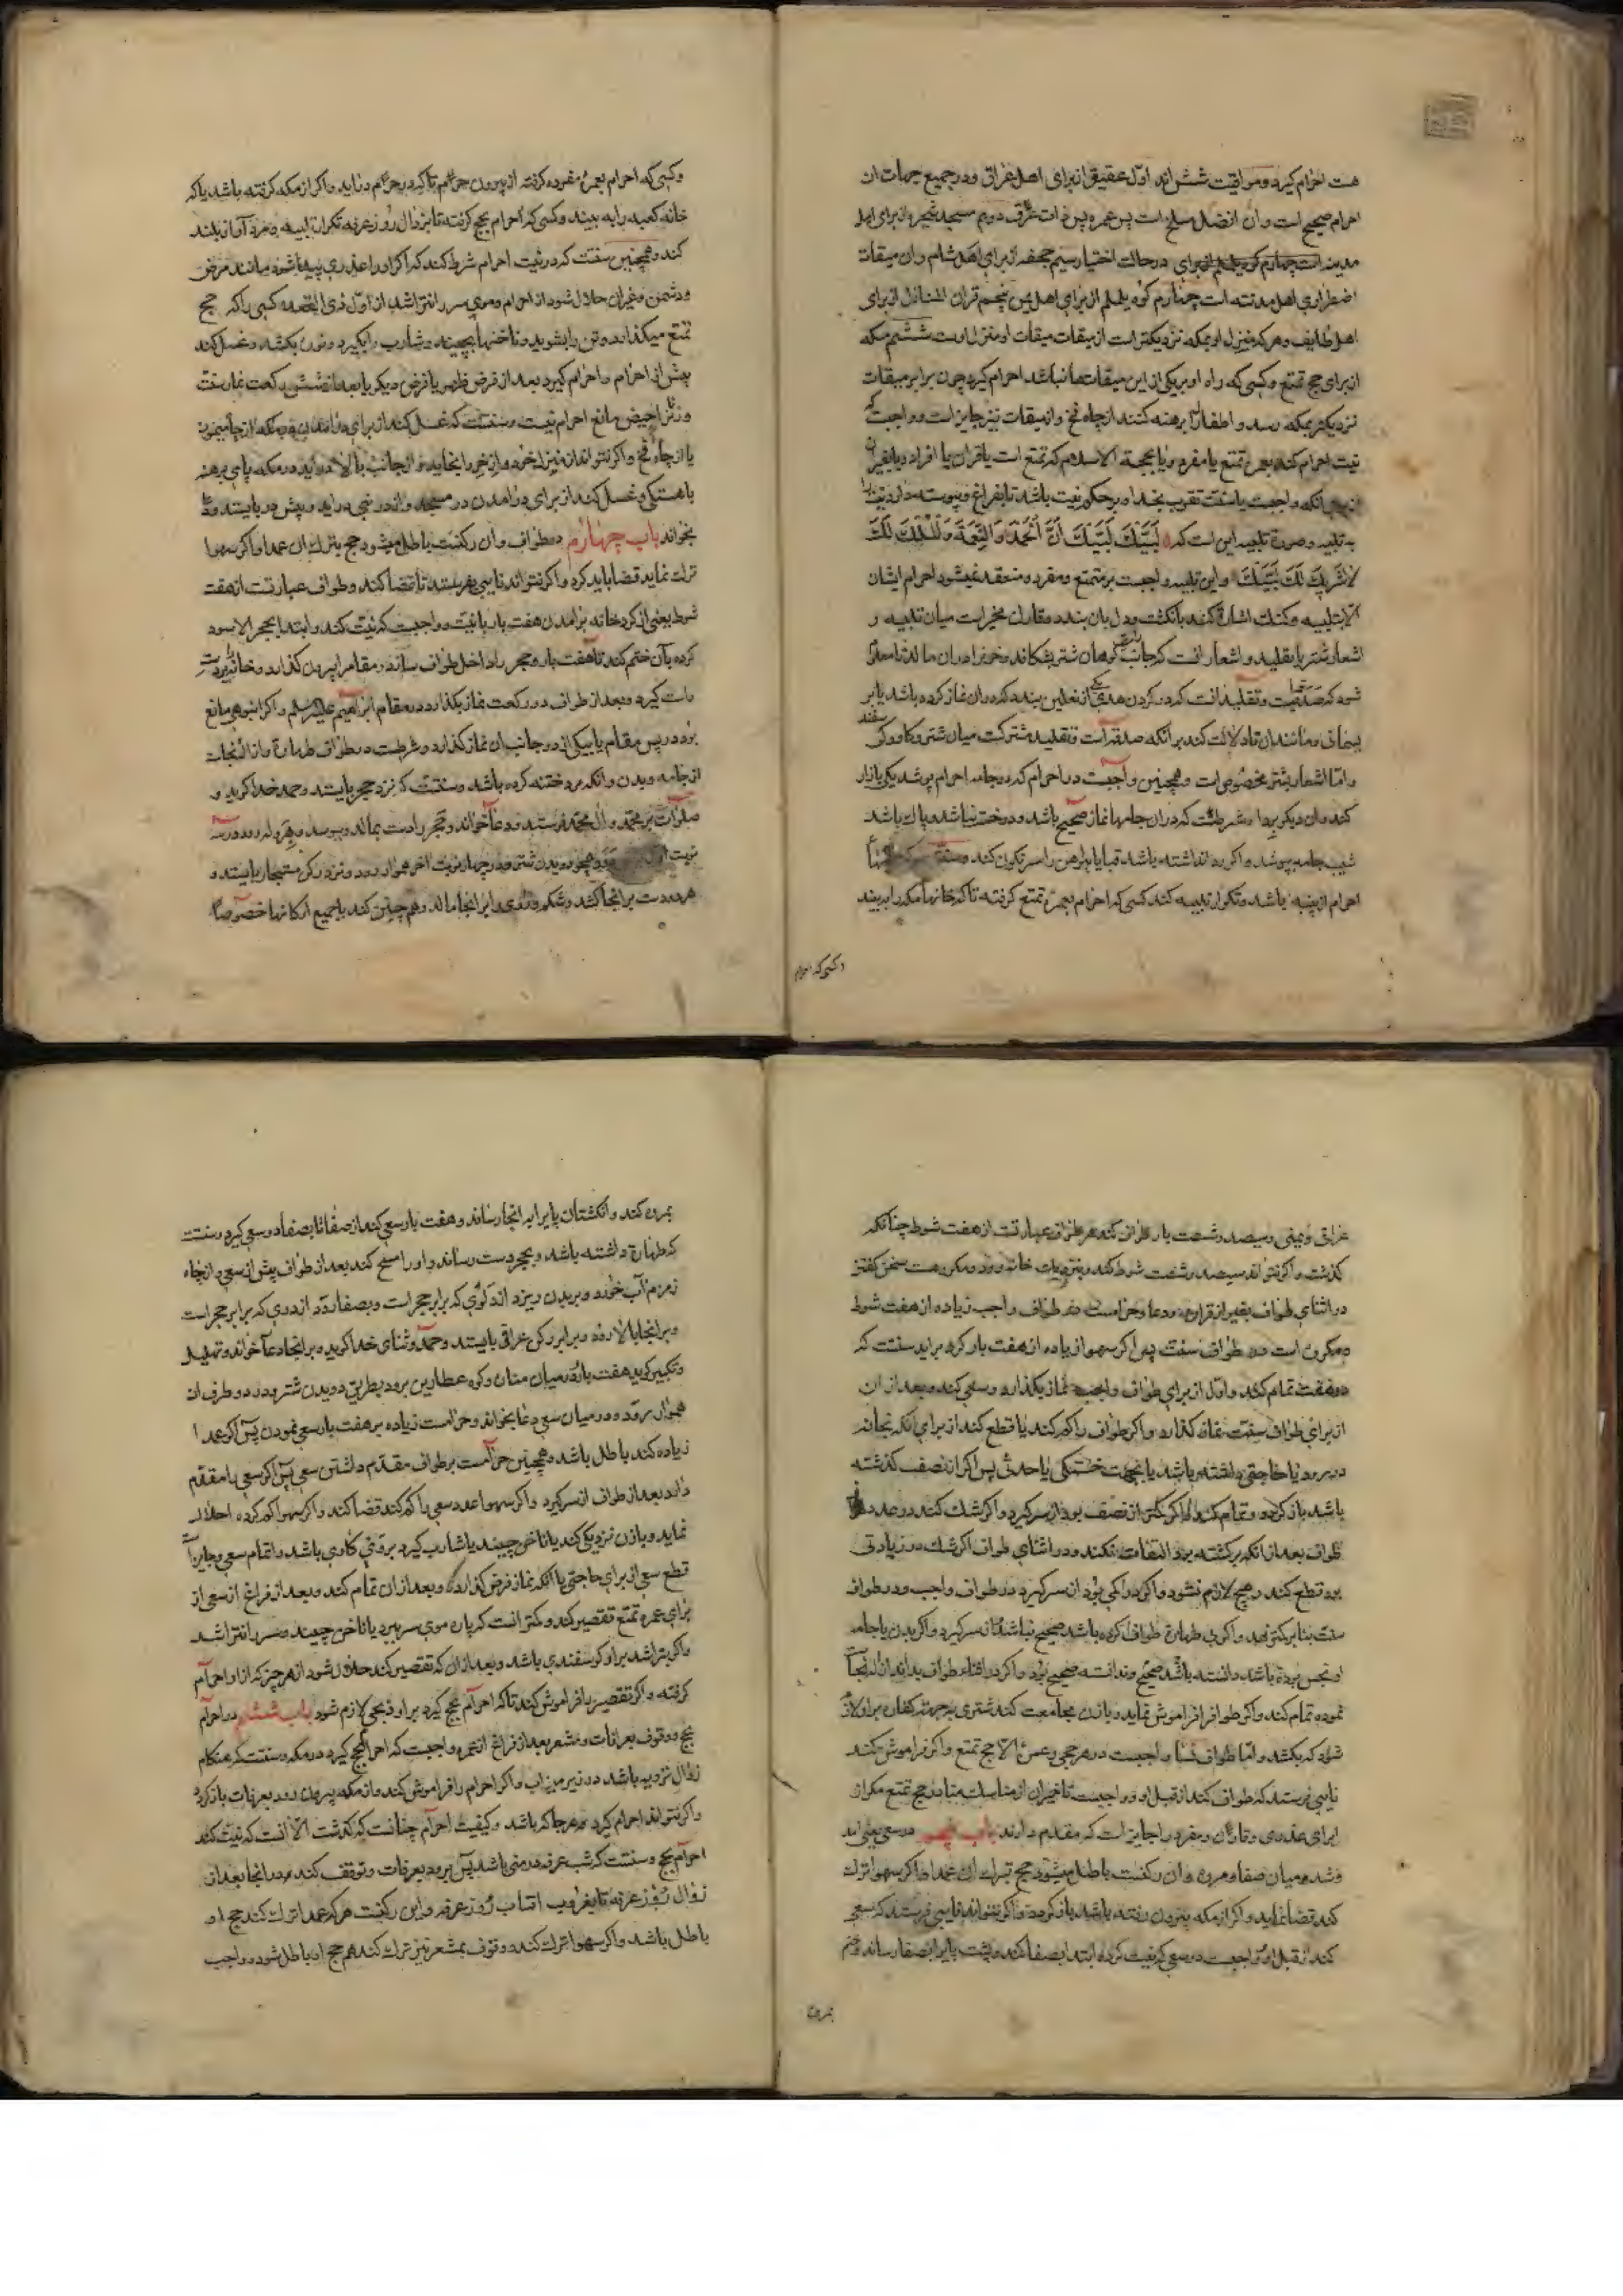 هست احرام کیرد و مواقیت شش اند اول عقیق از برای اهل عراق و در جمیع جهات ان
احرام صحیح است و ان افضل مسلخ است پس غمره پس ذات عرق دویم مسجد شجره از برای اهل
مدینه است در حالت اختیار سیم جحفه از برای اهل شام و ان میقات
اضطراری اهل مدینه است چهارم کوه یلملم از برای اهل یمن پنجم قران المنازل از برای
اهل طایف و هر که منزل او بمکه نزدیکتر است از میقات میقات او منزل اوست ششم مکه
از برای حج تمتع و کسی که راه او بریکی از این میقات ها نباشد احرام کیرد چون برابر میقات
نزدیکتر بمکه رسد و اطفال را برهنه کنند از چاه فخ و از میقات نیز جایز است و واجبست که
نیت احرام کند بعمره تمتع یا مفرده و یا بحجة الاسلام که تمتع است یا قران یا افراد
انکه واجبست یا سنت تقرب بخدا و بر حکم نیت باشد تا بفراغ و پیوسته دارد نیت را
به تلبیه و صورة تلبیه این است که لَبَّیْكَ لَبَّیْكَ اِنَّ الْحَمْدَ وَالنِّعْمَةَ وَالْمُلْكَ لَكَ
لاشَرِیكَ لَكَ لَبَّیْكَ و این تلبیه واجبست بر متمتع و مفرد و منعقد نمیشود احرام ایشان
الا بتلبیه و کنک اشاره کند بانکشت و دل بان بندد و مقارن مخیر است میان تلبیه و
اشعار شتر یا تقلید و اشعار انست که جانب راست کوهان شتر بشکافد و خون او را دران مالد تا معلوم
شود که صدقه است و تقلید انست که در کردن هدی نعلین بندد که دران نماز کرده باشد یا بر
یسمانی و مانند ان تا دلالت کند بر انکه صدقه است و تقلید مشترکست میان شتر و کاو و کوسفند
و اما اشعار بشتر مخصوص است و همچنین واجبست در احرام که دو جامه احرام پوشد یکی را ازار
کند و ان دیکر را ردا و شرطست که دران جامها نماز صحیح باشد و دوخته نباشد و پاک باشد
شیب جامه بپوشد و اکر ردا نداشته باشد قبا یا پیراهن را سرنکون کند و سنت
احرام از پنبه باشد و تکرار تلبیه کند کسی که احرام بعمره تمتع کرفته تا که خانهای مکه را ببیند
و کسی که احرام
و کسی که احرام بعمره مفرده کرفته از بیرون حرم تا که در حرم دراید و اکر از مکه کرفته باشد یا که
خانه کعبه را به بیند و کسی که احرام بحج کرفته تا بزوال روز عرفه تکرار تلبیه و مرد آواز بلند
کند و همچنین سنت که در نیت احرام شرط کند که اکر او را عذری پیدا شود مانند مرض
و دشمن و غیر ان حلال شود از احرام و موی سر را نتراشد از اول ذی القعده کسی را که حج
تمتع میکذارد و تن را بشوید و ناخنها بچیند و شارب را بکیرد و نوره بکشد و غسل کند
پیش از احرام و احرام کیرد بعد از فرض ظهر یا فرض دیکر یا بعد از شش رکعت نماز سنت
و زن را حیض مانع احرام نیست و سنت است که غسل کند از برای درامدن بمکه از چاه میمون
یا از چاه فخ و اکر نتواند از منزل خود و اذخر را بخاید و از جانب بالا دراید در مکه پای برهنه
باهستکی و غسل کند از برای درامدن در مسجد و از در بنی شیبه دراید و پیش در بایستد و دعا
بخواند باب چهارم در طواف و ان رکنست باطل میشود حج بترک ان عمدا و اکر سهوا
ترک نماید قضا باید کرد و اکر نتواند نایبی بفرستد تا قضا کند و طواف عبارتست از هفت
شوط یعنی از کرد خانه برامدن هفت بار با نیت و واجبست که نیت کند و ابتدا بحجر الاسود
کرده بآن ختم کند تا هفت بار و حجر را داخل طواف سازد و مقام را بیرون کذارد و خانه را بر دست
راست کیرد و بعد از طواف دو رکعت نماز بکذارد در مقام ابراهیم علیه السلم و اکر انبوهی مانع
بود در پس مقام یا بیکی از دو جانب ان نماز کذارد و شرطست در طواف طهارة و ازاله نجاسات
از جامه و بدن و انکه مرد ختنه کرده باشد و سنتست که نزد حجر بایستد و حمد خدا کوید و
صلوات بر محمد و ال محمد فرستد و دعا خواند و حجر را دست بمالد و ببوسد و هروله رود در سه
نوبت همچو دویدن شتر و در چهار نوبت اخر هموار رود و نزد رکن مستجار بایستد و
هر دو دست بر انجا کشد و شکم و روی را بر انجا مالد و همچنین کند با جمیع ارکانها خصوصا
عراقی و یمنی و سیصد و شصت بار طواف کند هر طواف عبارتست از هفت شوط چنانکه
کذشت و اکر نتواند سیصد و شصت شوط کند و بنزدیک خانه رود و مکروهست سخن کفتن
در اثنای طواف بغیر از قراءه و دعا و حرامست در طواف واجب زیاده از هفت شوط
و مکروه است در طواف سنت پس اکر سهوا زیاده از هفت بار کرده براید سنت که
دو هفت تمام کند و اول از برای طواف واجب نماز بکذارد و سعی کند و بعد از ان
از برای طواف سنت نماز کذارد و اکر طواف را کم کند یا قطع کند از برای انکه بخانه
در رود یا حاجتی داشته باشد یا بجهت خستکی یا حدثی پس اکر از نصف کذشته
باشد باز کردد و تمام کند و اکر کمتر از نصف بود از سر کیرد و اکر شک کند در عدد
طواف بعد از انکه برکشته بود التفات نکند و در اثنای طواف اکر شک در زیادتی
بود قطع کند و هیچ لازم نشود و اکر در کمی بود از سر کیرد در طواف واجب و در طواف
سنت بنا بر کمتر نهد و اکر بی طهارة طواف کرده باشد صحیح نباشد از سر کیرد و اکر بدن یا جامه
او نجس بوده باشد دانسته باشد صحیح و ندانسته صحیح بود و اکر در اثناء طواف بداند ازاله نجاست
نموده تمام کند و اکر طواف را فراموش نماید و با زن مجامعت کند شتری به جهة کفاره بر او لازم
شود که بکشد و اما طواف نسا واجبست در هر حجی و عمره الا حج تمتع و اکر فراموش کند
نایبی فرستد که طواف کند از قبل او و واجبست تاخیر ان از مناسک منا در حج تمتع مکر از
برای عذری و قارن و مفرد را جایز است که مقدم دارند باب پنجم در سعی یعنی امد
و شد در میان صفا و مروه و ان رکنست باطل میشود حج بترک ان عمدا و اکر سهوا ترک
کند قضا نماید و اکر از مکه بیرون رفته باشد باز کردد و اکر نتواند نایبی فرستد که سعی
کند از قبل او و واجبست در سعی که نیت کرده ابتدا بصفا کند و پشت پا را بصفا رساند و ختم
بمروه
بمروه کند و انکشتان پا را به انجا رساند و هفت بار سعی کند از صفا تا بصفا دو سعی کیرد و سنتست
که طهارة داشته باشد و بحجر دست رساند و او را مسح کند بعد از طواف پیش از سعی و از چاه
زمزم آب خورد و بر بدن ریزد از دلوی که برابر حجر است و بصفا رود از دری که برابر حجر است
و بر انجا بالا رود و برابر رکن عراقی بایستد و حمد و ثنای خدا کوید و بر انجا دعا خواند و تهلیل
و تکبیر کوید هفت بار و در میان منار و کوه عطارین برود بطریق دویدن شتر و در دو طرف ان
هموار رود و در میان سعی دعا بخواند و حرامست زیاده بر هفت بار سعی نمودن پس اکر عمدا
زیاده کند باطل باشد و همچنین حرامست بر طواف مقدم داشتن سعی پس اکر سعی را مقدم
دارد بعد از طواف از سر کیرد و اکر سهوا عدد سعی را کم کند قضا کند و اکر سهوا کم کرده احلال
نماید و با زن نزدیکی کند یا ناخن چیند یا شارب کیرد بر وی کاوی باشد و اتمام سعی و جایز است
قطع سعی از برای حاجتی یا انکه نماز فرض کذارد و بعد از ان تمام کند و بعد از فراغ از سعی از
برای عمره تمتع تقصیر کند و کمتر انست که پاره موی سر ببرد یا ناخن چیند و سر را نتراشد
و اکر بتراشد بر او کوسفندی باشد و بعد از ان که تقصیر کند حلال شود از هر چیز که از او احرام
کرفته و اکر تقصیر را فراموش کند تا که احرام بحج کیرد بر او ذبحی لازم شود باب ششم در احرام
بحج و وقوف بعرفات و مشعر بعد از فراغ از عمره واجبست که احرام بحج کیرد در مکه و سنتست که هنکام
زوال ترویه باشد در زیر میزاب و اکر احرام را فراموش کند و از مکه بیرون رود بعرفات باز کردد
و اکر نتواند احرام کیرد هرجا که باشد و کیفیت احرام چنانست که کذشت الا انست که نیت کند
احرام بحج و سنتست که شب عرفه در منی باشد پس برود بعرفات و توقف کند در انجا بعد از
زوال روز عرفه تا بغروب افتاب روز عرفه و این رکنست هر که عمدا ترک کند حج او
باطل باشد و اکر سهوا ترک کند و وقوف بمشعر نیز ترک کند هم حج او باطل شود و واجب